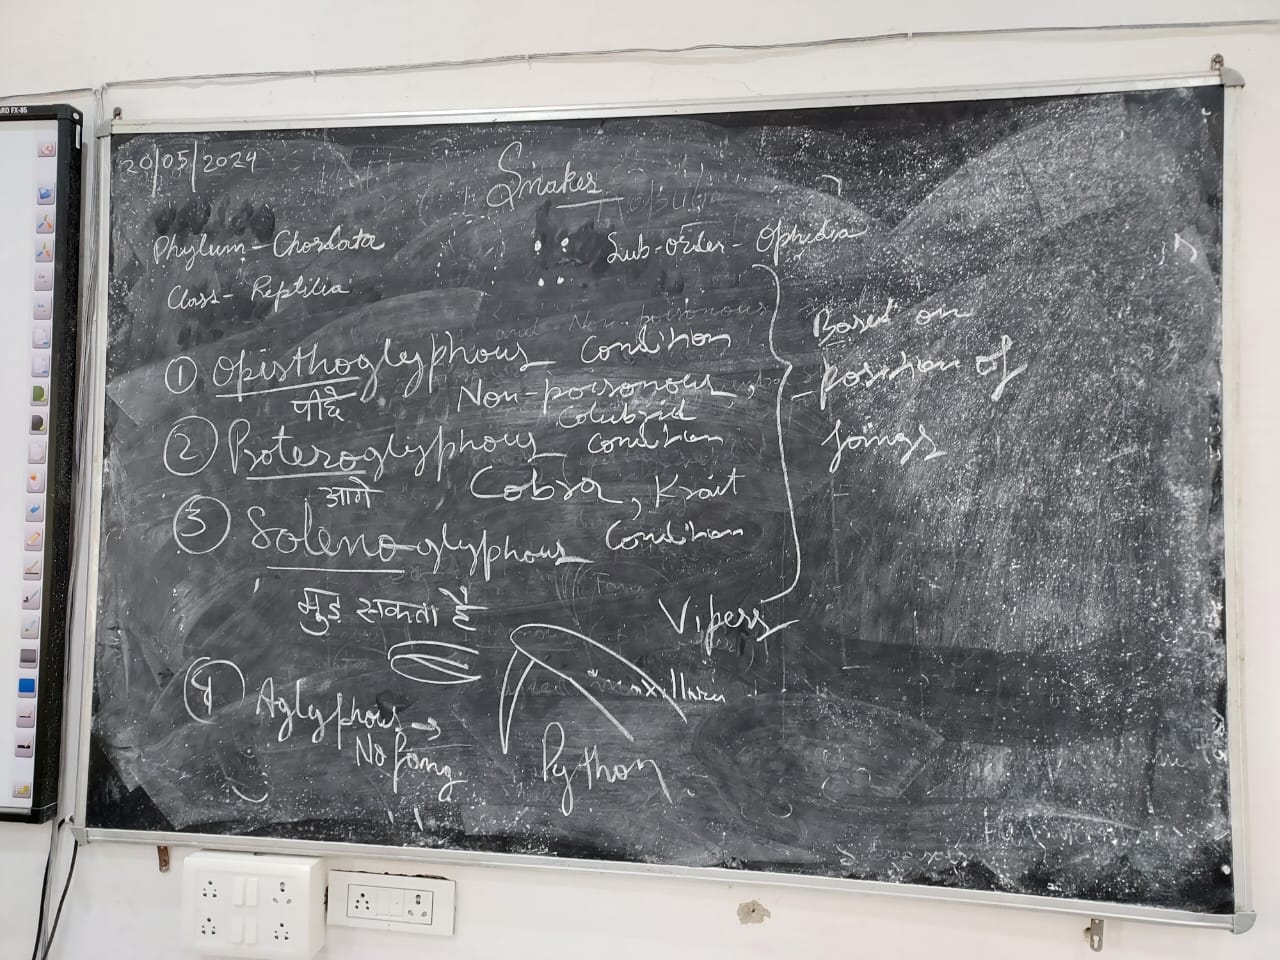 20/05/2024
Snakes
Phylum - Chordata
Sub-order - Ophidia
Class - Reptilia
① Opisthoglyphous Condition
पीछे
Non-poisonous,
Colubrid
② Proteroglyphous Condition
आगे
Cobra, Krait
③ Solenoglyphous Condition
मुड़ सकता है
Vipers
Based on
position of
fangs
④ Aglyphous →
No fang
Python